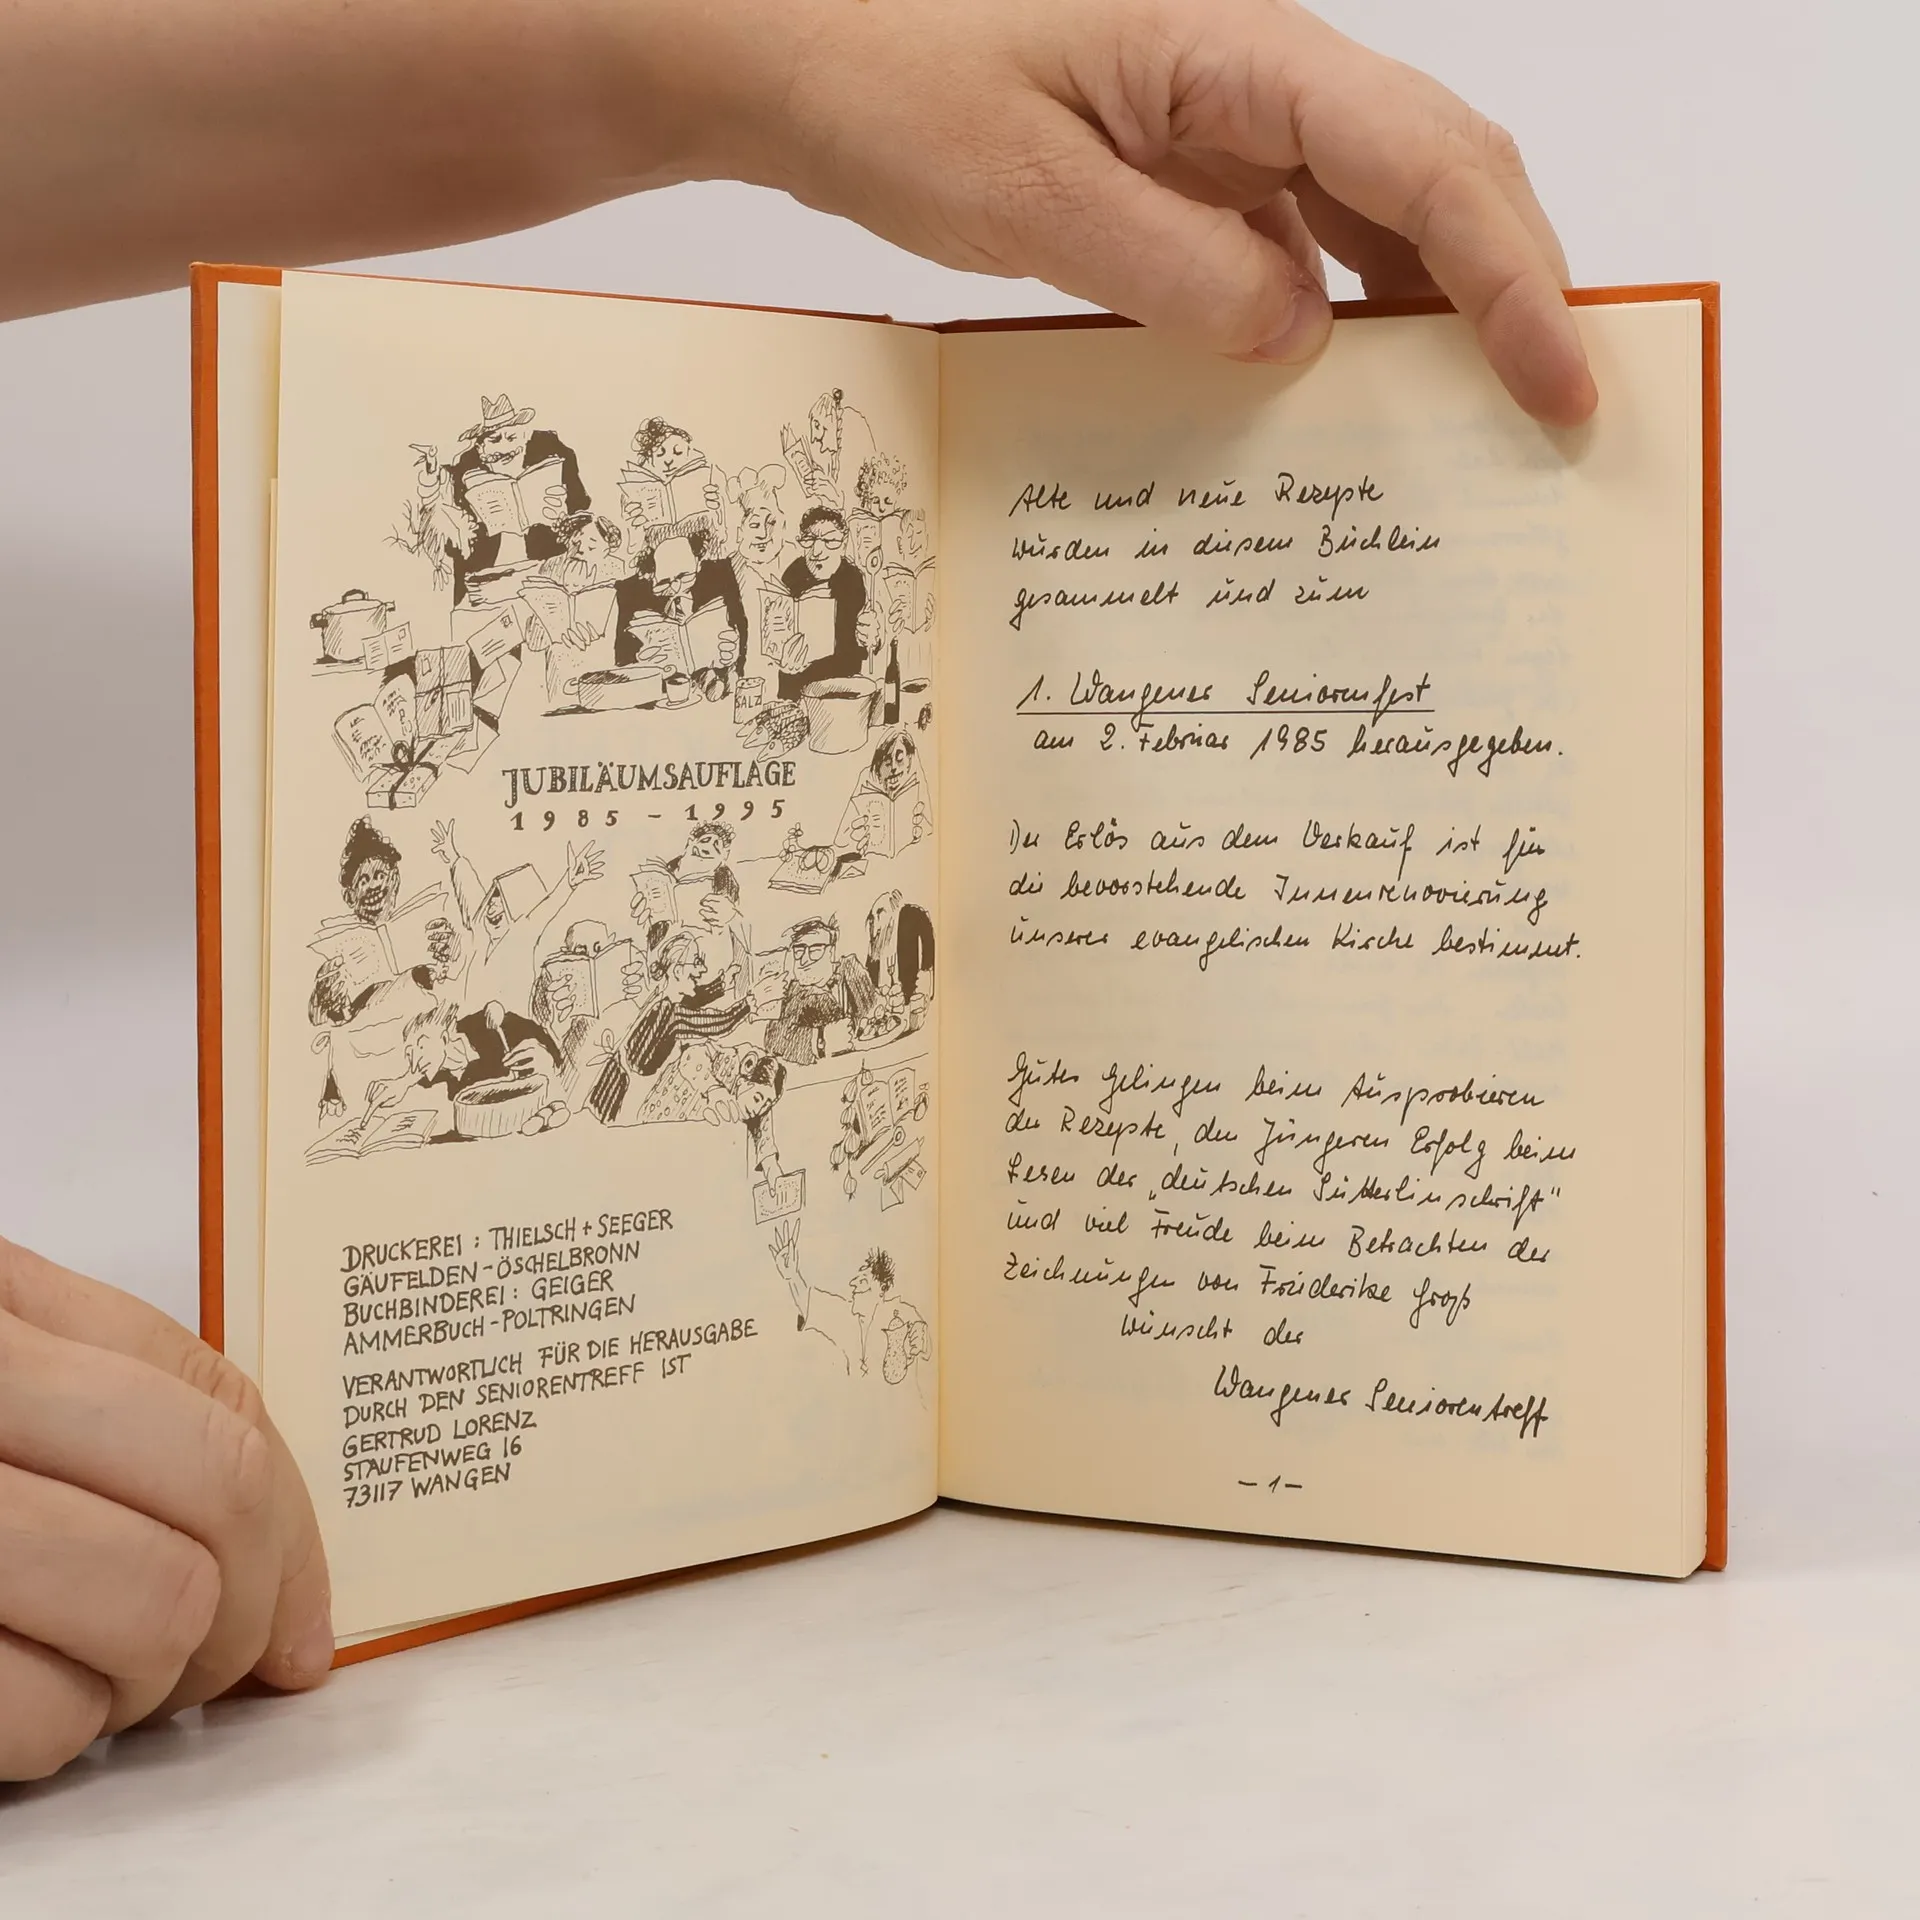 SALZ
JUBILÄUMSAUFLAGE
1985 - 1995
DRUCKEREI : THIELSCH + SEEGER
GÄUFELDEN - ÖSCHELBRONN
BUCHBINDEREI : GEIGER
AMMERBUCH - POLTRINGEN
VERANTWORTLICH FÜR DIE HERAUSGABE
DURCH DEN SENIORENTREFF IST
GERTRUD LORENZ
STAUFENWEG 16
73117 WANGEN
Alte und neue Rezepte
wurden in diesem Büchlein
gesammelt und zum
1. Wangener Seniorenfest
am 2. Februar 1985 herausgegeben.
Der Erlös aus dem Verkauf ist für
die bevorstehende Innenrenovierung
unserer evangelischen Kirche bestimmt.
Gutes Gelingen beim Ausprobieren
der Rezepte, den Jüngeren Erfolg beim
Lesen der „deutschen Sütterlinschrift"
und viel Freude beim Betrachten der
Zeichnungen von Friederike Groß
wünscht der
Wangener Seniorentreff
- 1 -